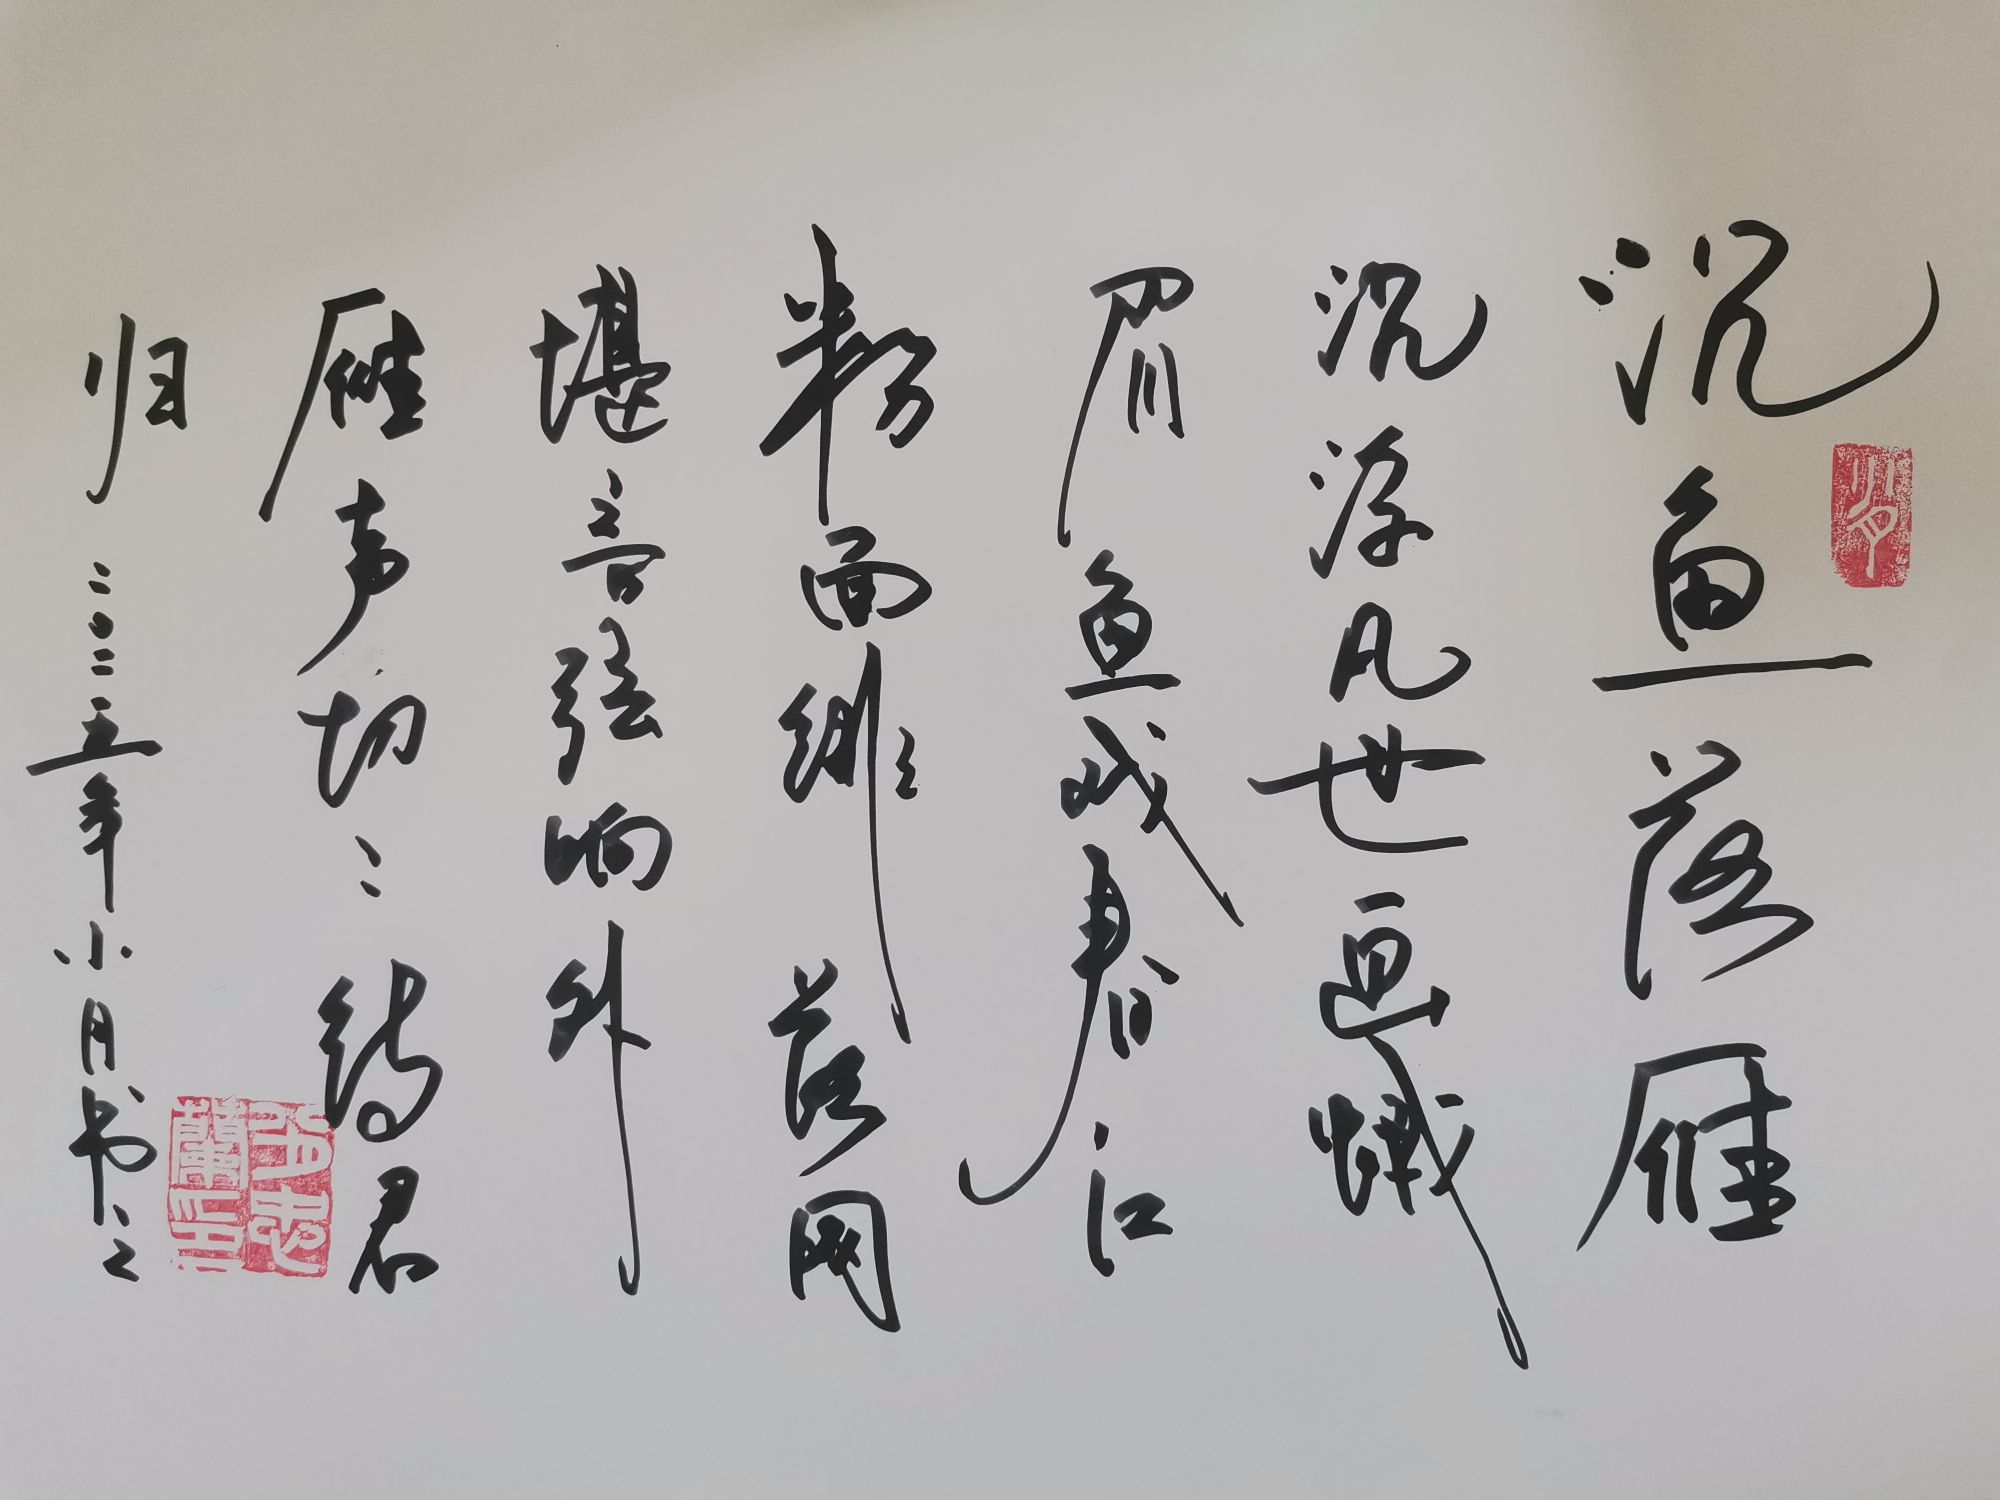 沉鱼落雁
沉浮凡世画蛾
眉鱼戏春江
粉面绯落网
堪音弦响外
雁声切〻待君
归 二〇二五年小月书之